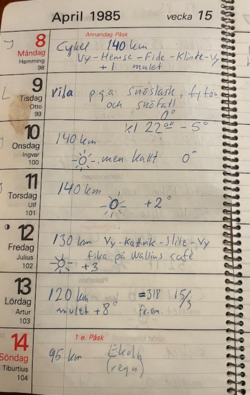 April 1985 vecka 15
Annandag Påsk
8 Cykel 140 km
Måndag Vy-Hemse-Fide-Klinte-Vy
Hemming +1 mulet
98
9 vila p.g.a snöslask,
Tisdag och snöfall
Otto 0°
99 kl 22⁰⁰ -5°
10 140 km
Onsdag men kallt 0°
Ingvar
100
11 140 km
Torsdag +2°
Ulf
101
12 130 km Vy-Kathrik-Slite-Vy
Fredag fika på Wallins café
Julius +3
102
13 120 km =318 15/3
Lördag mulet +8° fr.o.m.
Artur
103
1 e. Påsk
14 95 km
Söndag (regn)
Tiburtius
104